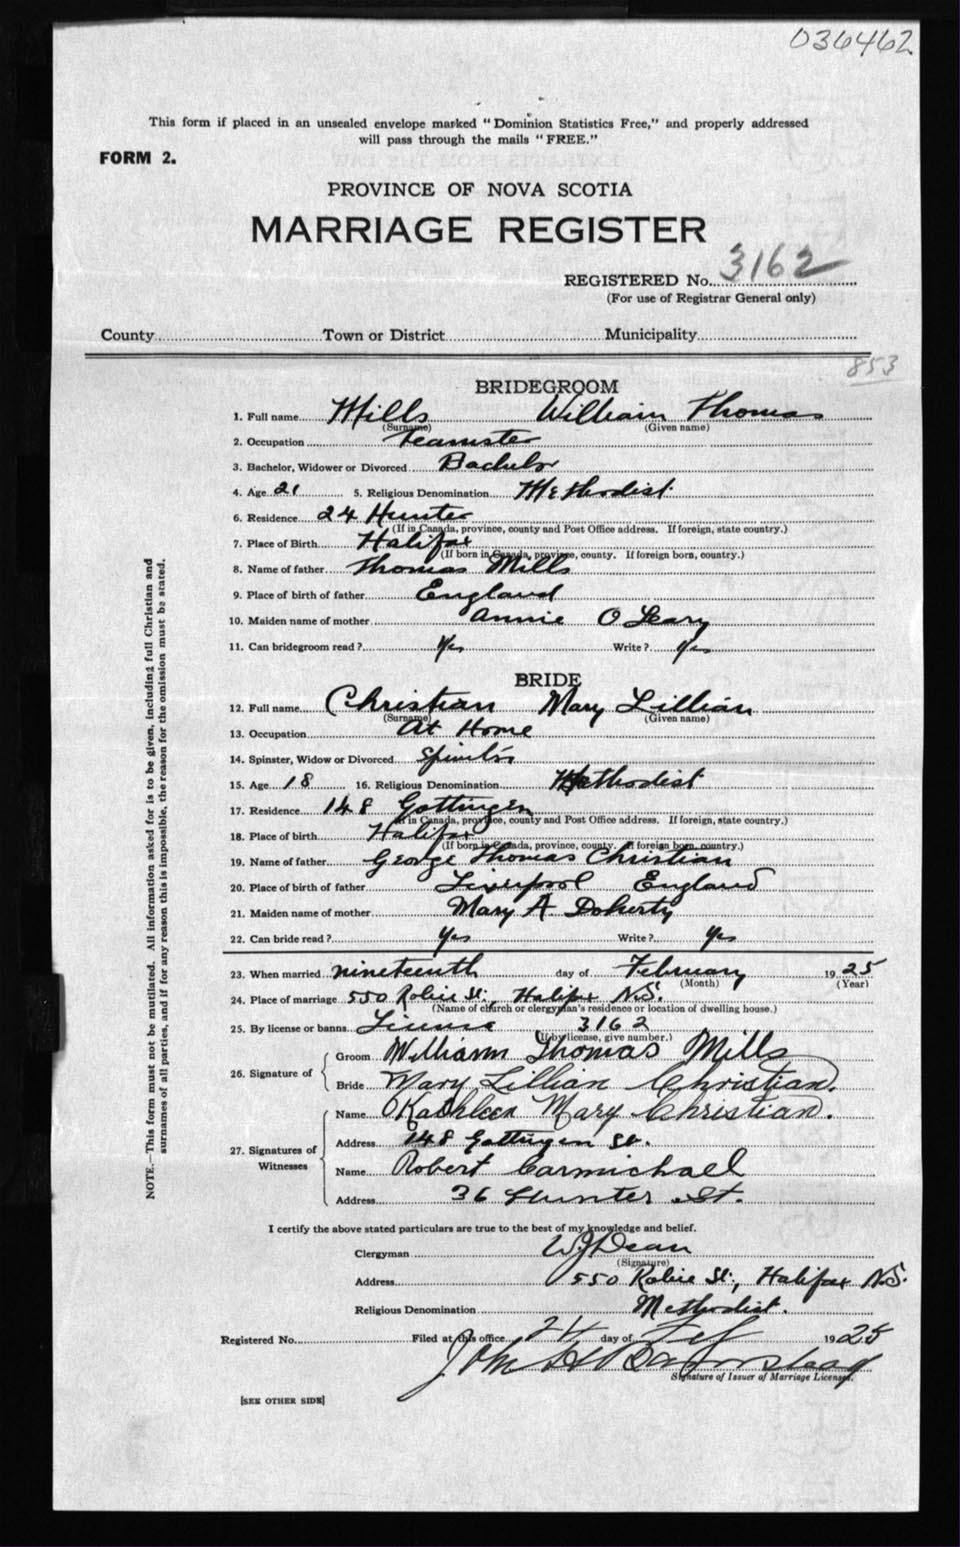 036462
This form if placed in an unsealed envelope marked "Dominion Statistics Free," and properly addressed
will pass through the mails "FREE."
FORM 2.
PROVINCE OF NOVA SCOTIA
MARRIAGE REGISTER
REGISTERED No. 3162
(For use of Registrar General only)
County Town or District Municipality
853
BRIDEGROOM
1. Full name Mills William Thomas
(Surname) (Given name)
2. Occupation Teamster
3. Bachelor, Widower or Divorced Bachelor
4. Age 21 5. Religious Denomination Methodist
6. Residence 24 Hunter
(If in Canada, province, county and Post Office address. If foreign, state country.)
7. Place of Birth Halifax
(If born in Canada, province, county. If foreign born, country.)
8. Name of father Thomas Mills
9. Place of birth of father England
10. Maiden name of mother Annie O Leary
11. Can bridegroom read? Yes Write? Yes
BRIDE
12. Full name Christian Mary Lillian
(Surname) (Given name)
13. Occupation At Home
14. Spinster, Widow or Divorced Spinster
15. Age 18 16. Religious Denomination Methodist
17. Residence 148 Gottingen
(If in Canada, province, county and Post Office address. If foreign, state country.)
18. Place of birth Halifax
(If born in Canada, province, county. If foreign born, country.)
19. Name of father George Thomas Christian
20. Place of birth of father Liverpool England
21. Maiden name of mother Mary A. Doherty
22. Can bride read? Yes Write? Yes
23. When married nineteenth day of February 1925
(Month) (Year)
24. Place of marriage 550 Robie St., Halifax N.S.
(Name of church or clergyman's residence or location of dwelling house.)
25. By license or banns License 3162
(If by license, give number.)
26. Signature of
Groom William Thomas Mills
Bride Mary Lillian Christian.
27. Signatures of Witnesses
Name Kathleen Mary Christian.
Address 148 Gottingen St.
Name Robert Carmichael
Address 36 Hunter St.
I certify the above stated particulars are true to the best of my knowledge and belief.
Clergyman W J Dean
(Signature)
Address 550 Robie St., Halifax N.S.
Religious Denomination Methodist.
Registered No. Filed at this office 24 day of Feb 1925
John
Signature of Issuer of Marriage Licenses.
[SEE OTHER SIDE]
NOTE.—This form must not be mutilated. All information asked for is to be given, including full Christian and
surnames of all parties, and if for any reason this is impossible, the reason for the omission must be stated.